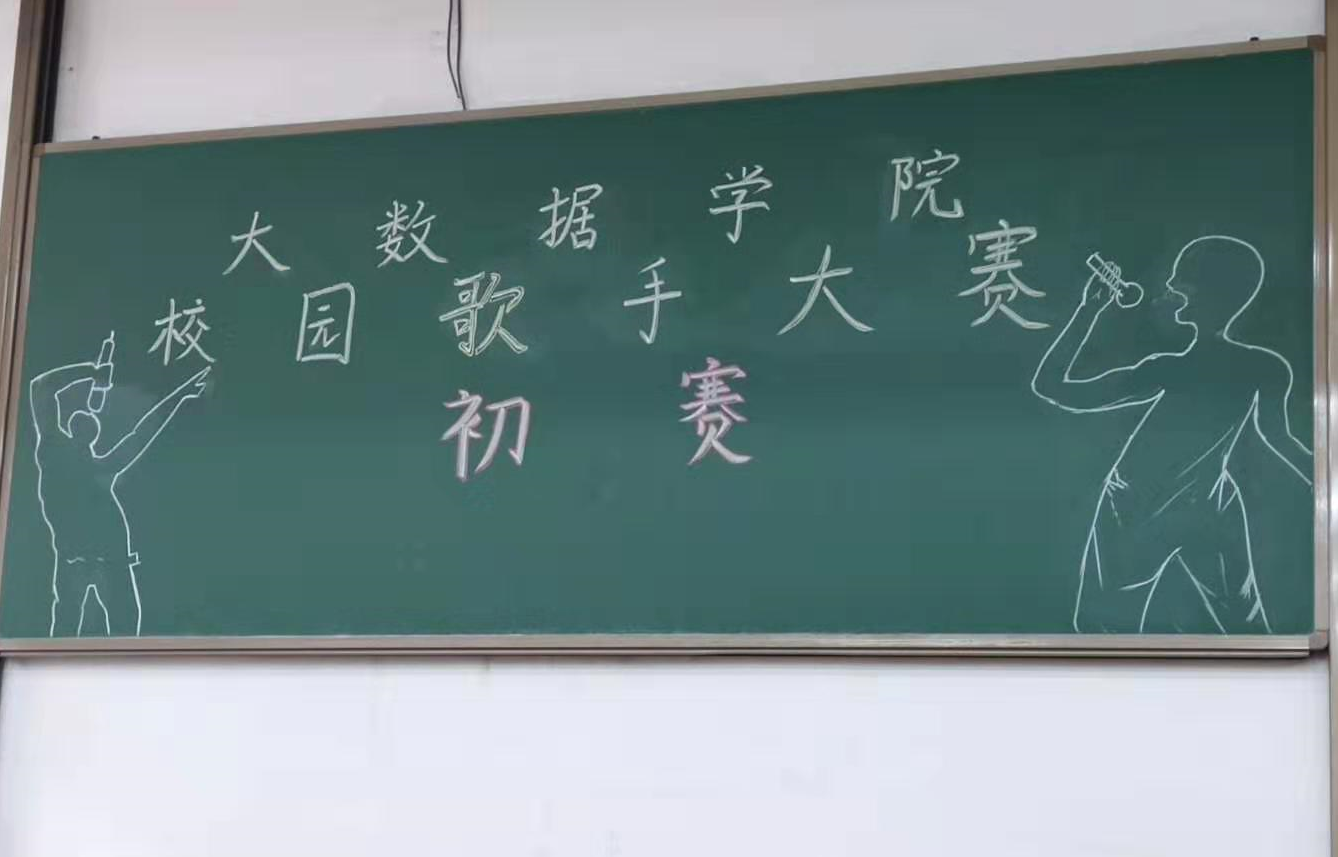 大数据学院
校园歌手大赛
初赛